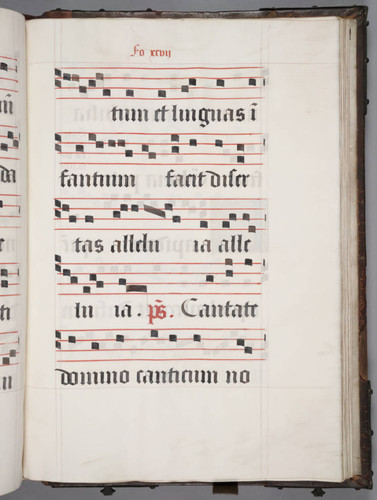 Fo xcvij
tum et linguas ī
fantium facit diser
tas allelu ia alle
lu ia. ps̄. Cantate
domino canticum no